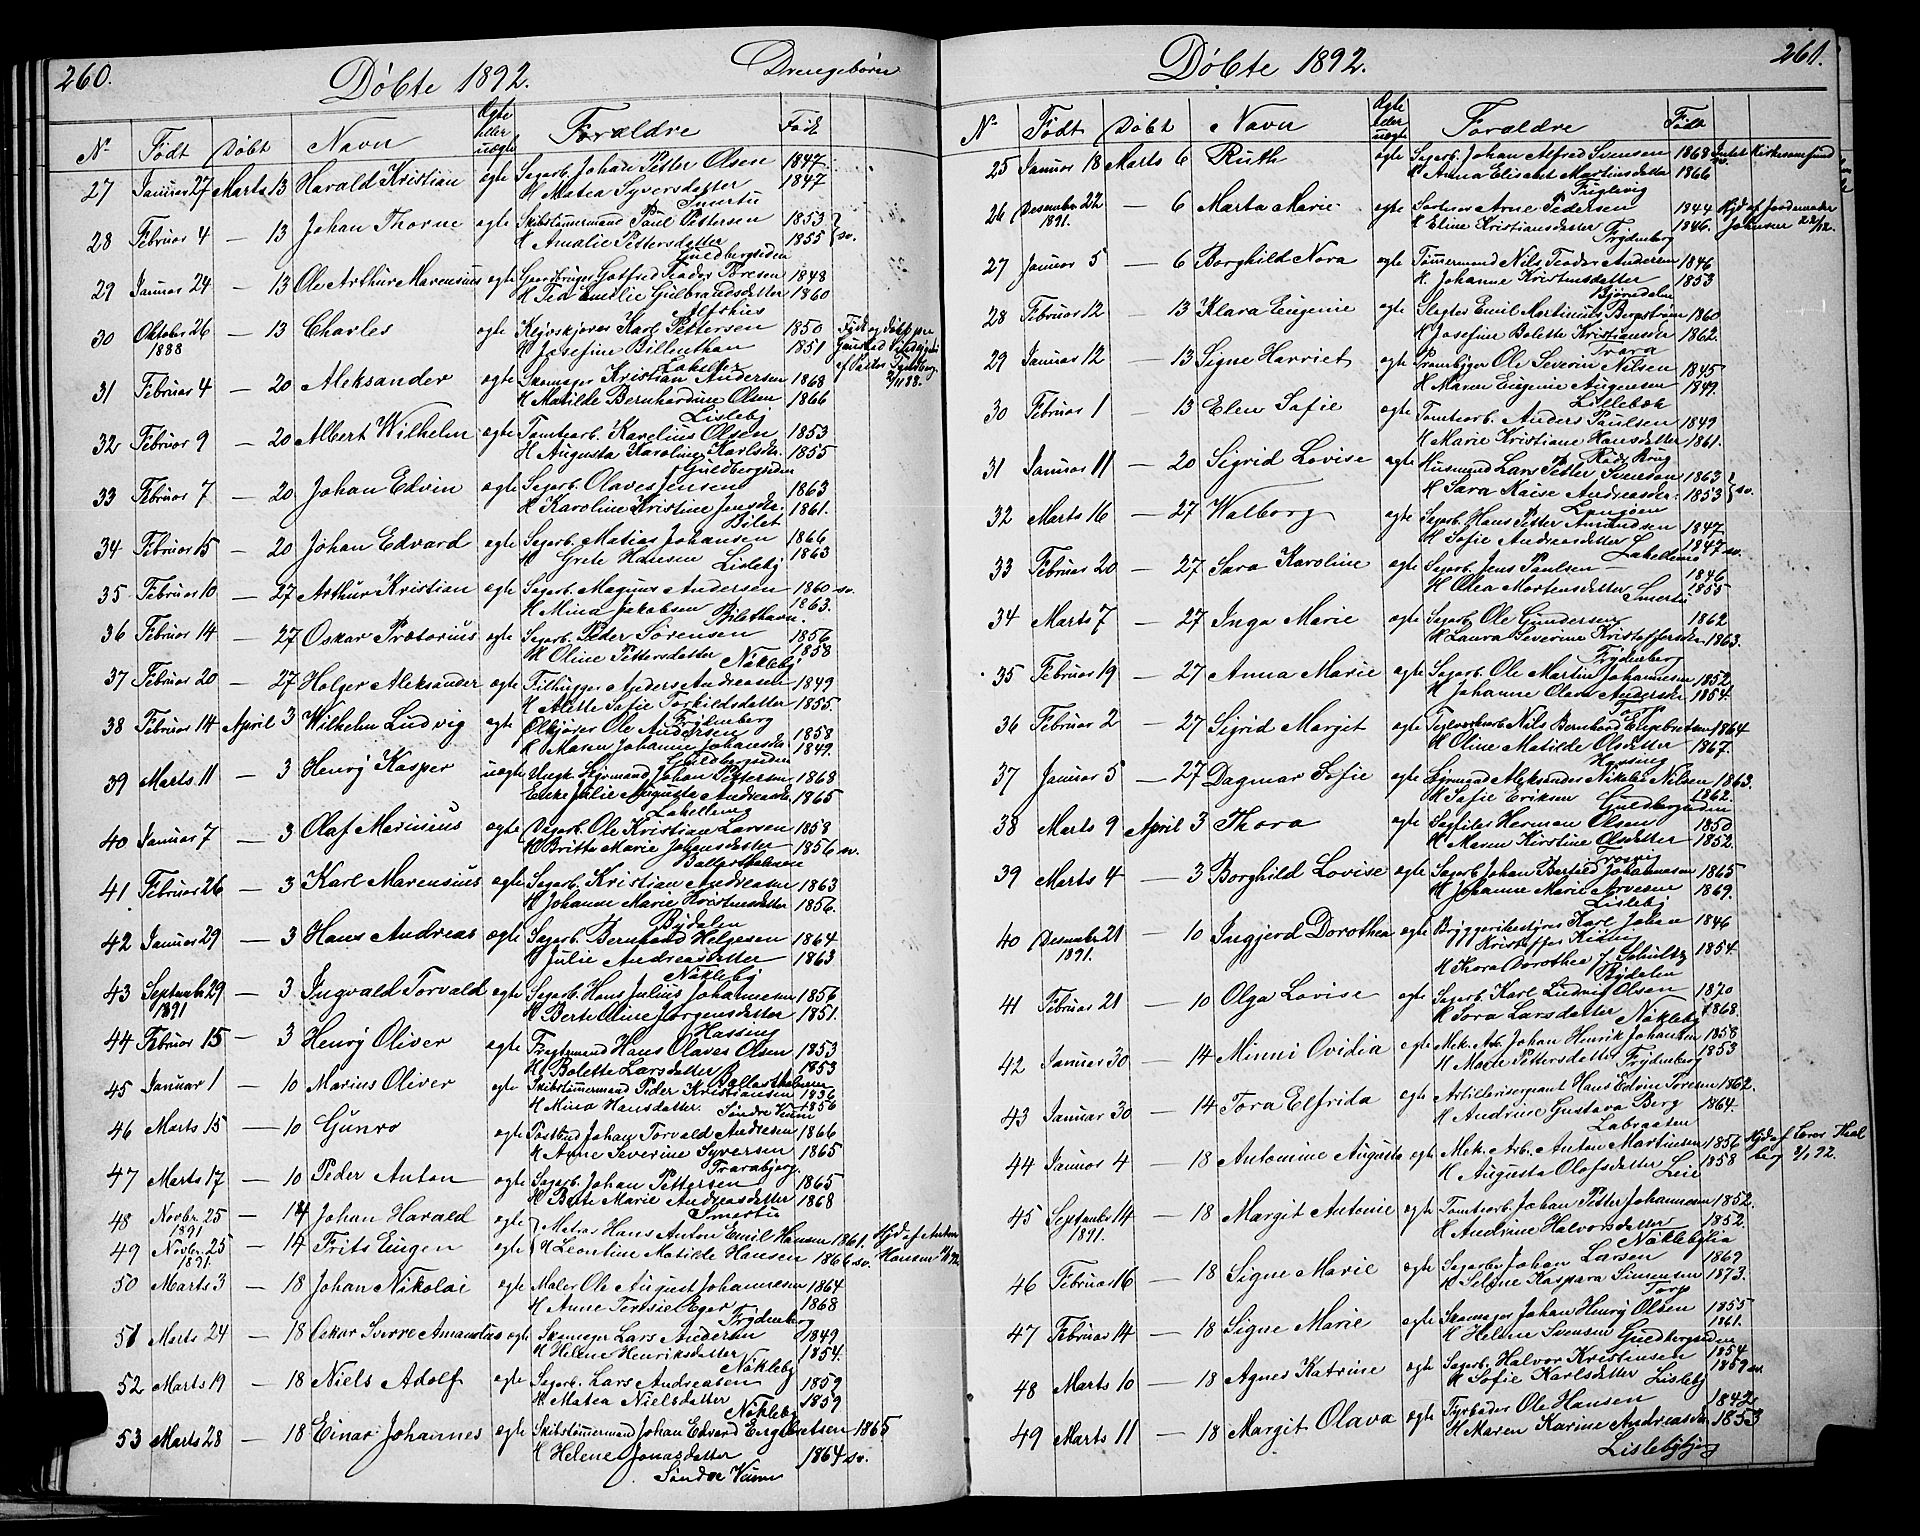 260.
Döbte 1892.
Drengebørn
No Födt Döbt Navn Ægte eller uægte Forældre Födt
27 Januar 27 Marts 13 Harald Kristian ægte Sagarb. Johan Petter Olsen 1847
H Matea Syversdatter 1847
Smertu
28 Februar 4 — 13 Johan Thorne ægte Skibstømermand Paul Pettersen 1853
H Amalie Pettersdatter 1855 sv.
Guldbergsiden
29 Januar 24 — 13 Ole Arthur Marensius ægte Gotfred Teodor Toresen 1848
H Tea Emilie Gulbrandsdatter 1860
30 Oktober 26 — 13 Charles ægte Karl Pettersen 1850
1888 H Josefine 1851
Labellen
31 Februar 4 — 20 Aleksander ægte Skomager Kristian Andersen 1868
H Matilde Bernhardine Olsen 1866
Lisleby
32 Februar 9 — 20 Albert Wilhelm ægte Tomtearb. Karelius Olsen 1853
H Augusta Karoline Karlsdr. 1855
Guldbergsiden
33 Februar 7 — 20 Johan Edvin ægte Sagarb. Olaves Jensen 1863
H Karoline Kristine Jensdr. 1861.
Bilet
34 Februar 15 — 20 Johan Edvard ægte Sagarb. Matias Johansen 1866
H Grete Hansen 1863
Lisleby
35 Februar 10 — 27 Arthur Kristian ægte Sagarb. Magnus Andersen 1860 sv.
H Mina Jakobsen 1863.
Bilethavn.
36 Februar 14 — 27 Oskar Prætorius ægte Sagarb. Peder Sörensen 1856
H Oline Pettersdatter 1858
Nökleby
37 Februar 20 — 27 Holger Aleksander ægte Tilhugger Anders Andreasen 1849
H Alette Sofie Torkildsdatter 1855
Frydenberg
38 Februar 14 April 3 Wilhelm Ludvig ægte Ølkjører Ole Andersen 1858
H Maren Johanne Johansdr 1849.
Guldbergsiden
39 Marts 11 — 3 Henrÿ Kasper uægte Ungk. Styrmand Johan Pettersen 1868
Enke Julie Augusta Andreasdr. 1865
Labellen
40 Januar 7 — 3 Olaf Marinius ægte Dagarb. Ole Kristian Larsen 1858
H Britta Marie Johansdatter 1856 sv.
41 Februar 26 — 3 Karl Marensius ægte Sagarb. Kristian Andreasen 1863
H Johanne Marie Kristinesdatter 1856.
Rydalen
42 Januar 29 — 3 Hans Andreas ægte Sagarb. Bernhard Helgesen 1864
H Julie Andreasdatter 1863
Nökleby
43 September 29 — 3 Ingvald Torvald ægte Sagarb. Hans Julius Johannesen 1856
1891 H Berte Mine Jörgensdatter 1851.
Hassing
44 Februar 15 — 3 Henrÿ Oliver ægte Hans Olaves Olsen 1853
H Bolette Larsdatter 1853
45 Januar 1 — 10 Marius Oliver ægte Skibstömmermand Peder Kristiansen 1836
H Mina Hansdatter 1856
46 Marts 15 — 10 Gunro ægte Postbud Johan Torvald Andresen 1866
H Anne Severine Syversen 1865
Trarabjerg.
47 Marts 17 — 10 Peder Anton ægte Sagarb. Johan Pettersen 1865
H Berte Marie Andreasdatter 1868
Smertu
48 Novbr. 25 — 14 Johan Harald ægte Matros Hans Anton Emil Hansen 1861. Hjd af Anton
1891
49 Novbr. 25 — 14 Frits Eugen ægte H Leontine Matilde Hansen 1866 sv. Hansen
1891.
50 Marts 3 — 18 Johan Nikolai ægte Maler Ole August Johannesen 1864
H Anne Eger 1868
Frydenberg
51 Marts 24 — 18 Oskar Sverre Amandus ægte Skomager Lars Andersen 1849
H Helene Henriksdatter 1854.
Nökleby
52 Marts 19 — 18 Niels Adolf ægte Sagarb. Lars Andreasen 1859
H Matea Nielsdatter 1859
Nökleby
53 Marts 28 — 18 Einar Johannes ægte Skibstömmermand Johan Edvard Engebretsen 1865
H Helene Jonasdatter 1864 sv.
261.
Döbte 1892.
No Födt Döbt Navn Ægte eller uægte Forældre Födt
25 Januar 18 Marts 6 Ruth ægte Sagarb. Johan Alfred Svensen 1868 Intet Kirkesamfund
H Anna Elisabet Martinsdatter 1866
Trugleig
26 Desember 22 — 6 Marta Marie ægte Sorterer Arne Pedersen 1844 Hjd af Jordemoder
1891. H Eline Kristiansdatter 1846. Johnsen 22/12.
Frydenberg
27 Januar 5 — 6 Borghild Nora ægte Tömmermand Nils Teodor Andersen 1846
H. Johanne Kristensdatter 1853
Björndalen
28 Februar 12 — 13 Klara Eugenie ægte Slagter Emil Martinius Bergström 1860
H Josefine Bolette Kristiansdr 1862.
Trara
29 Januar 12 — 13 Signe Harriet ægte Prambygger Ole Severin Nilsen 1845
H Maren Eugenie Augensen 1849.
Lillebæk
30 Februar 1 — 13 Elen Sofie ægte Tomtearb. Anders Paulsen 1849
H Marie Kristiane Hansdatter 1861.
31 Januar 11 — 20 Sigrid Lovise ægte Husmand Lars Petter Svenson 1863
H Sara Kaise Andreasdr. 1853 sv.
32 Marts 16 — 27 Walborg ægte Sagarb. Hans Petter Amundsen 1847
H Sofie Andreasdatter 1847 sv.
Labellen
33 Februar 20 — 27 Sara Karoline ægte Sagarb. Jens Paulsen 1846
H Olea Mortensdatter 1855
Smertu
34 Marts 7 — 27 Inga Marie ægte Sagarb. Ole Gundersen 1862
H Laura Severine Kristoffersdr 1863.
Frydenberg
35 Februar 19 — 27 Anna Marie ægte Sagarb. Ole Martin Johannesen 1852
H Johanne Olava Andersdr. 1854.
Torp
36 Februar 2 — 27 Sigrid Margit ægte Teglverksarb. Nils Bernhard Engebretsen 1864
H Oline Matilde Olsdatter 1867.
Hassing
37 Januar 5 — 27 Dagmar Sofie ægte Aleksander Nikolai Nilsen 1863.
H Sofie Eriksen 1862.
Guldbergsiden
38 Marts 9 April 3 Thora ægte Sagfiler Herman Olsen 1850
H Maren Kirstine Olsdatter 1852.
39 Marts 4 — 3 Borghild Lovise ægte Sagarb. Johan Bertred Johannesen 1865
H Johanne Marie Arvesen 1869.
Lisleby
40 Desember 21 — 10 Ingjerd Dorothea ægte Bryggeribestyrer Karl Johan 1846
1891. Kristoffer
H Thora Dorothea J. Schultz 1854.
Rydalen
41 Februar 21 — 10 Olga Lovise ægte Sagarb. Karl Ludvig Olsen 1870
H Tora Larsdatter 1868.
Nökleby
42 Januar 30 — 14 Minni Ovidia ægte Mek. Arb. Johan Henrik Johansen 1858
H Marie Pettersdatter 1853
Frydenberg
43 Januar 30 — 14 Tora Elfrida ægte Artillerisergeant Hans Edvin Toresen 1862.
H Andrine Gustava Berg 1864.
Labraaten
44 Januar 4 — 18 Antonine Augusta ægte Mek. Arb. Anton Martinsen 1856 Hjd af
H Augusta Olafsdatter 1858
Leie
45 September 14 — 18 Margit Antonie ægte Tomtearb. Johan Petter Johannesen 1852.
1891. H Andrine Halvorsdatter 1852.
Nöklebylia
46 Februar 16 — 18 Signe Marie ægte Sagarb. Johan Larsen 1869
H Seline Kaspara Simensen 1873.
Torp
47 Februar 14 — 18 Signe Marie ægte Skomager Johan Henrÿ Olsen 1855
H Helene Svensen 1861.
Guldbergsiden
48 Marts 10 — 18 Agnes Katrine ægte Sagarb. Halvor Kristensen 1854
H Sofie Karlsdatter 1859 sv.
Lisleby
49 Marts 11 — 18 Margit Olava ægte Fyrböder Ole Hansen 1842
H Maren Karine Andreasdr 1853
Lislebybjerg